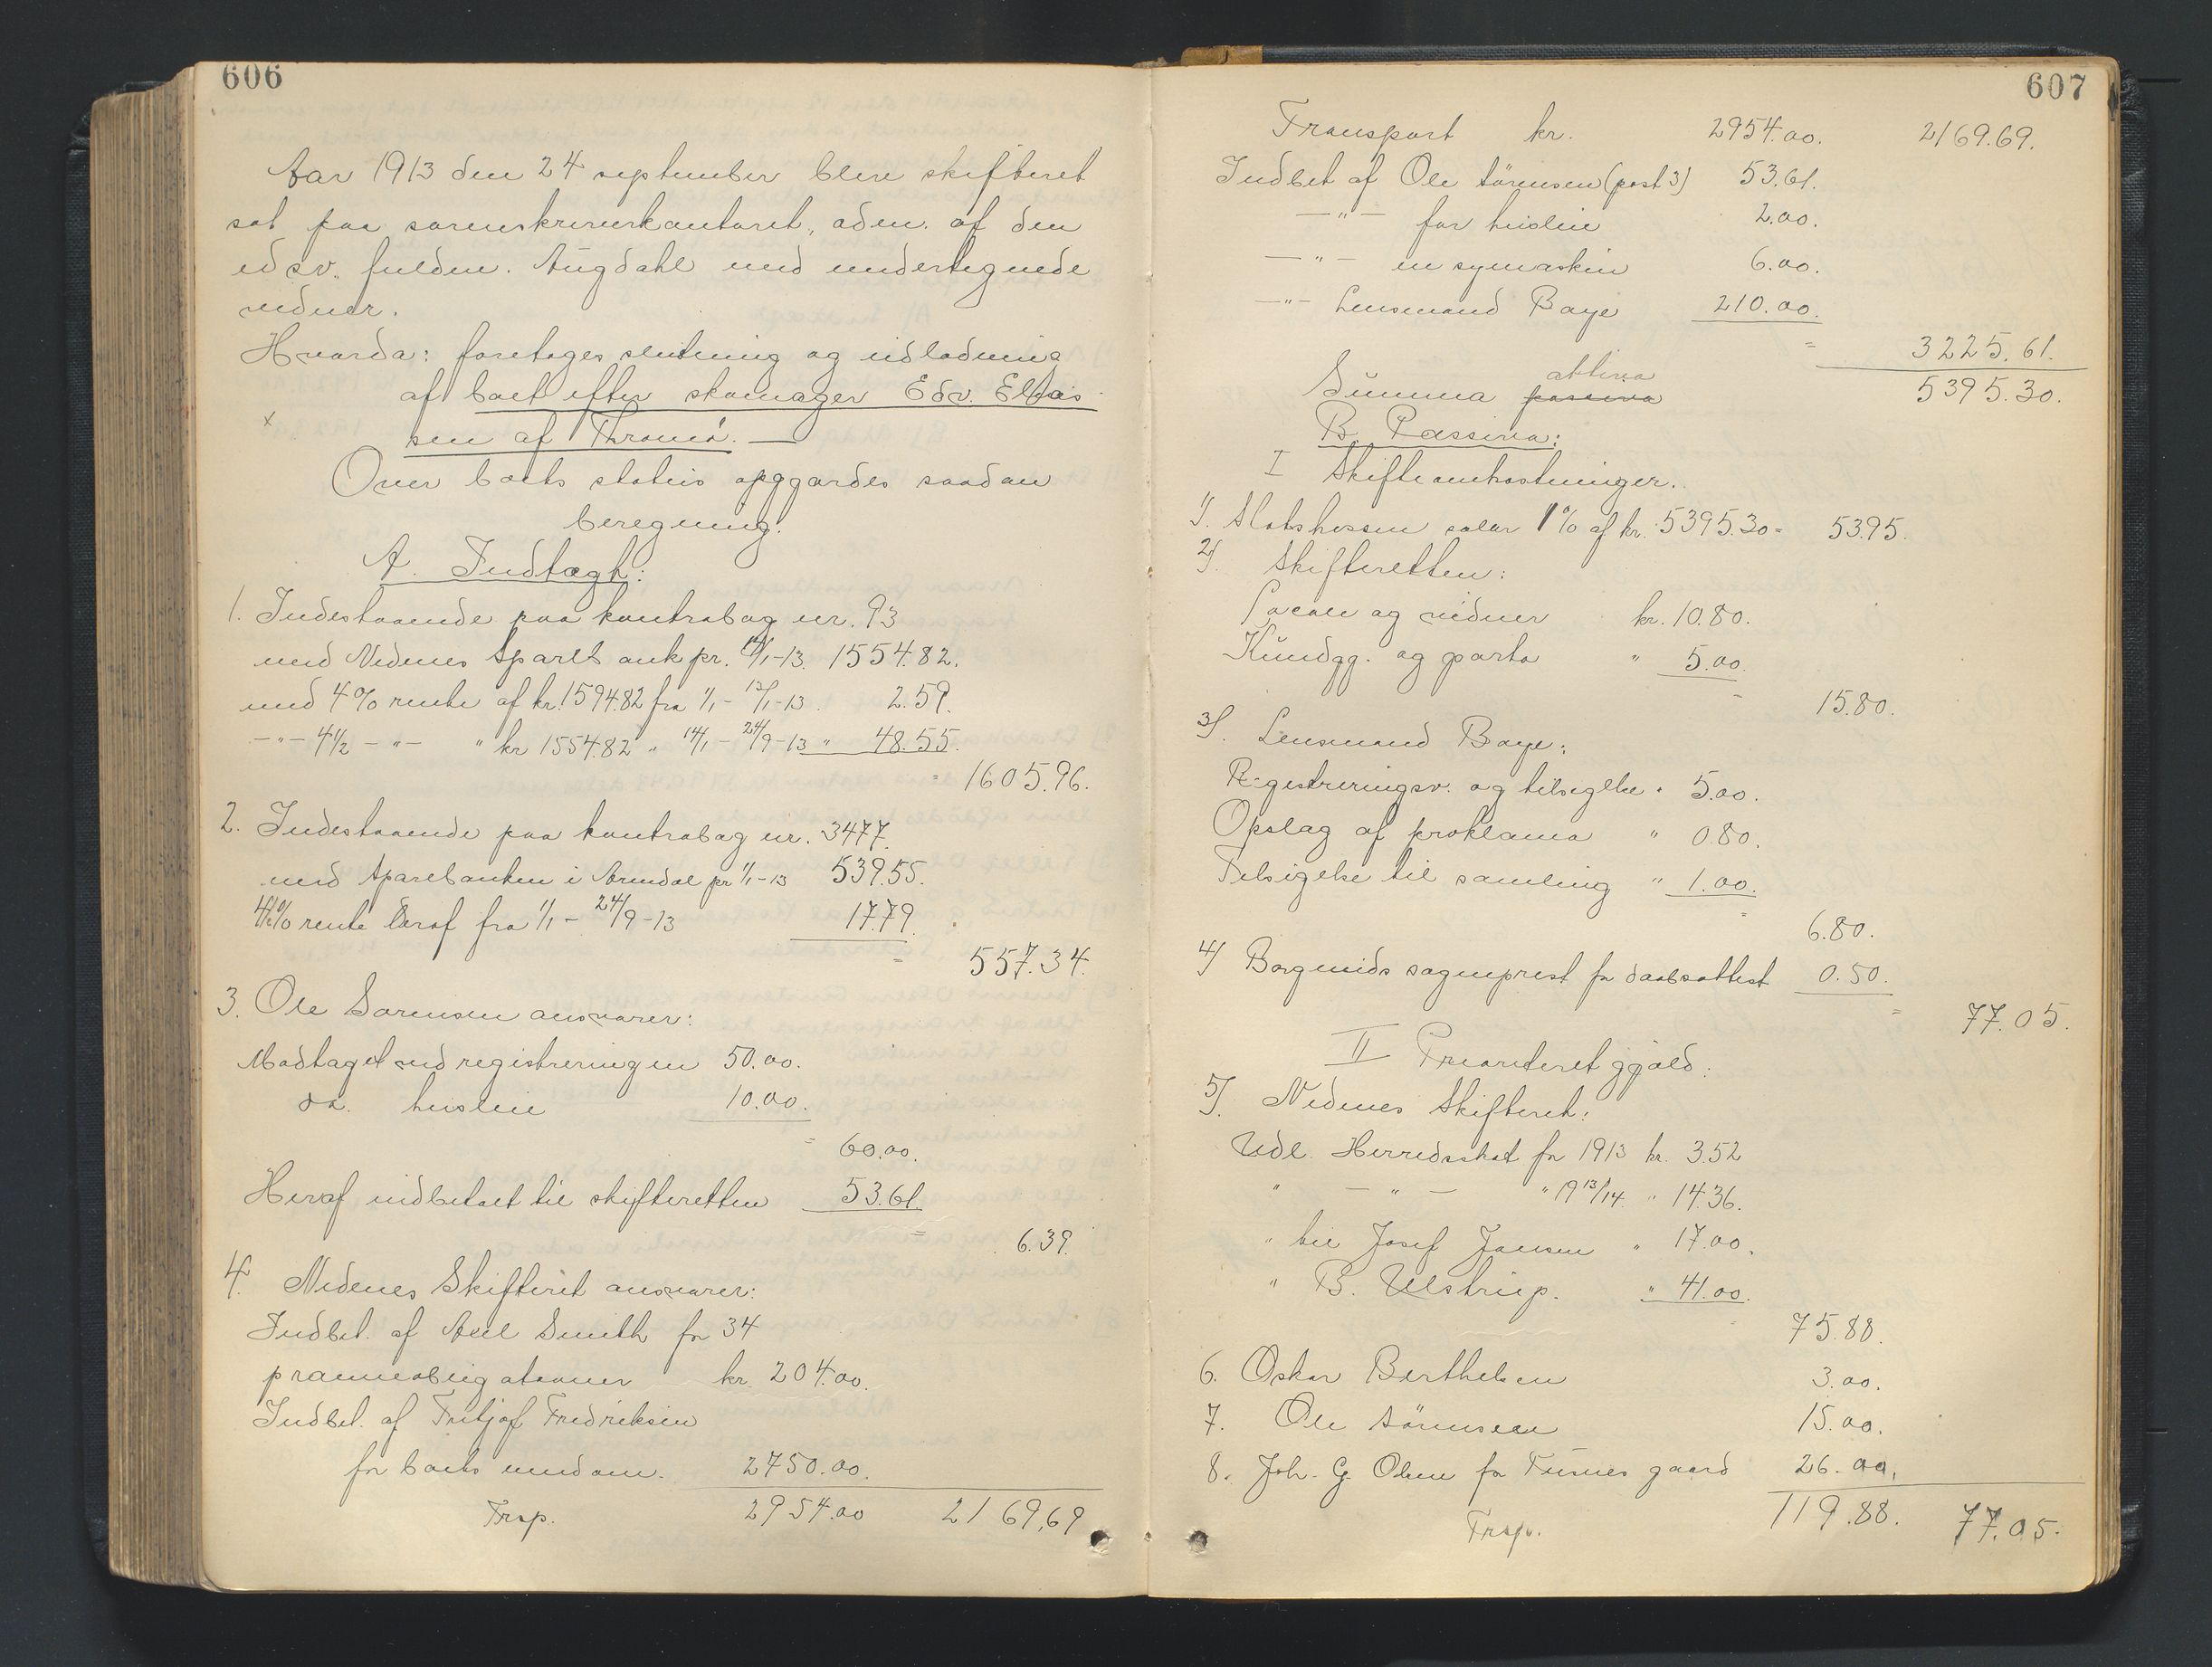 606
Aar 1913 den 24 september blev skifteret
sat paa sorenskriverkontoret, adm. af den
edsv. fuldm. Augdahl med undertegnede
vidner.
Hvorda: foretoges slutning og udlodning
af boet efter skomager Edv. Elias
x sen af Thromø. —
Over boets status opgjordes saadan
beregning:
A. Indtægt:
1. Indestaaende paa kontrabog nr. 93
med Nedenes Spareb ank pr. 14/1-13. 1554.82.
med 4% rente af kr. 1594.82 fra 1/1 - 13/1-13. 2.59.
—"— 4½ —"— " kr 1554.82 " 14/1 - 24/9-13 " 48.55.
= 1605.96.
2. Indestaaende paa kontrabog nr. 3477.
med Sparebanken i Arendal pr 1/1-13 539.55.
4½% rente deraf fra 1/1 - 24/9-13 17.79.
= 557.34.
3. Ole Sørensen ansvarer:
Modtaget ved registreringen 50.00.
do. husleie 10.00.
= 60.00.
Heraf indbetalt til skifteretten 53.61.
= 6.39.
4. Nedenes Skifteret ansvarer:
Indbet. af Axel Smith for 34
præmieobligationer kr. 204.00.
Indbet. af Fritjof Fredriksen
for boets eiendom. 2750.00.
Trsp. 2954.00 2169,69
607
Transport kr. 2954.00. 2169.69.
Indbet af Ole Sörensen (post 3) 53.61.
—"— for husleie 2.00.
—"— en symaskin 6.00.
—"— Lensmand Boye 210.00.
= 3225.61.
aktiva
Summa passiva 5395.30.
B. Passiva:
I Skifteomkostninger.
1). Statskassen salær 1% af kr. 5395.30 = 53.95.
2). Skifteretten:
Locale og vidner kr. 10.80.
Kundgj. og porto " 5.00.
15.80.
3). Lensmand Boye:
Registreringsv. og tilsigelse " 5.00.
Opslag af proklama " 0.80.
Tilsigelse til samling " 1.00.
= 6.80.
4) sogneprest for daabsattest 0.50.
= 77.05.
II Prioriteret gjæld:
5). Nedenes Skifteret:
Udl. Herredsskat for 1913 kr. 3.52
" —"— " 1913/14. " 14.36.
" til Josef Jansen " 17.00.
" B. Ulstrup. " 41.00.
75.88.
6. Oskar Berthelsen 3.00.
7. Ole Sörensen 15.00.
8. Joh. G. Olsen for gaard 26.00.
Trsp. 119.88. 77.05.